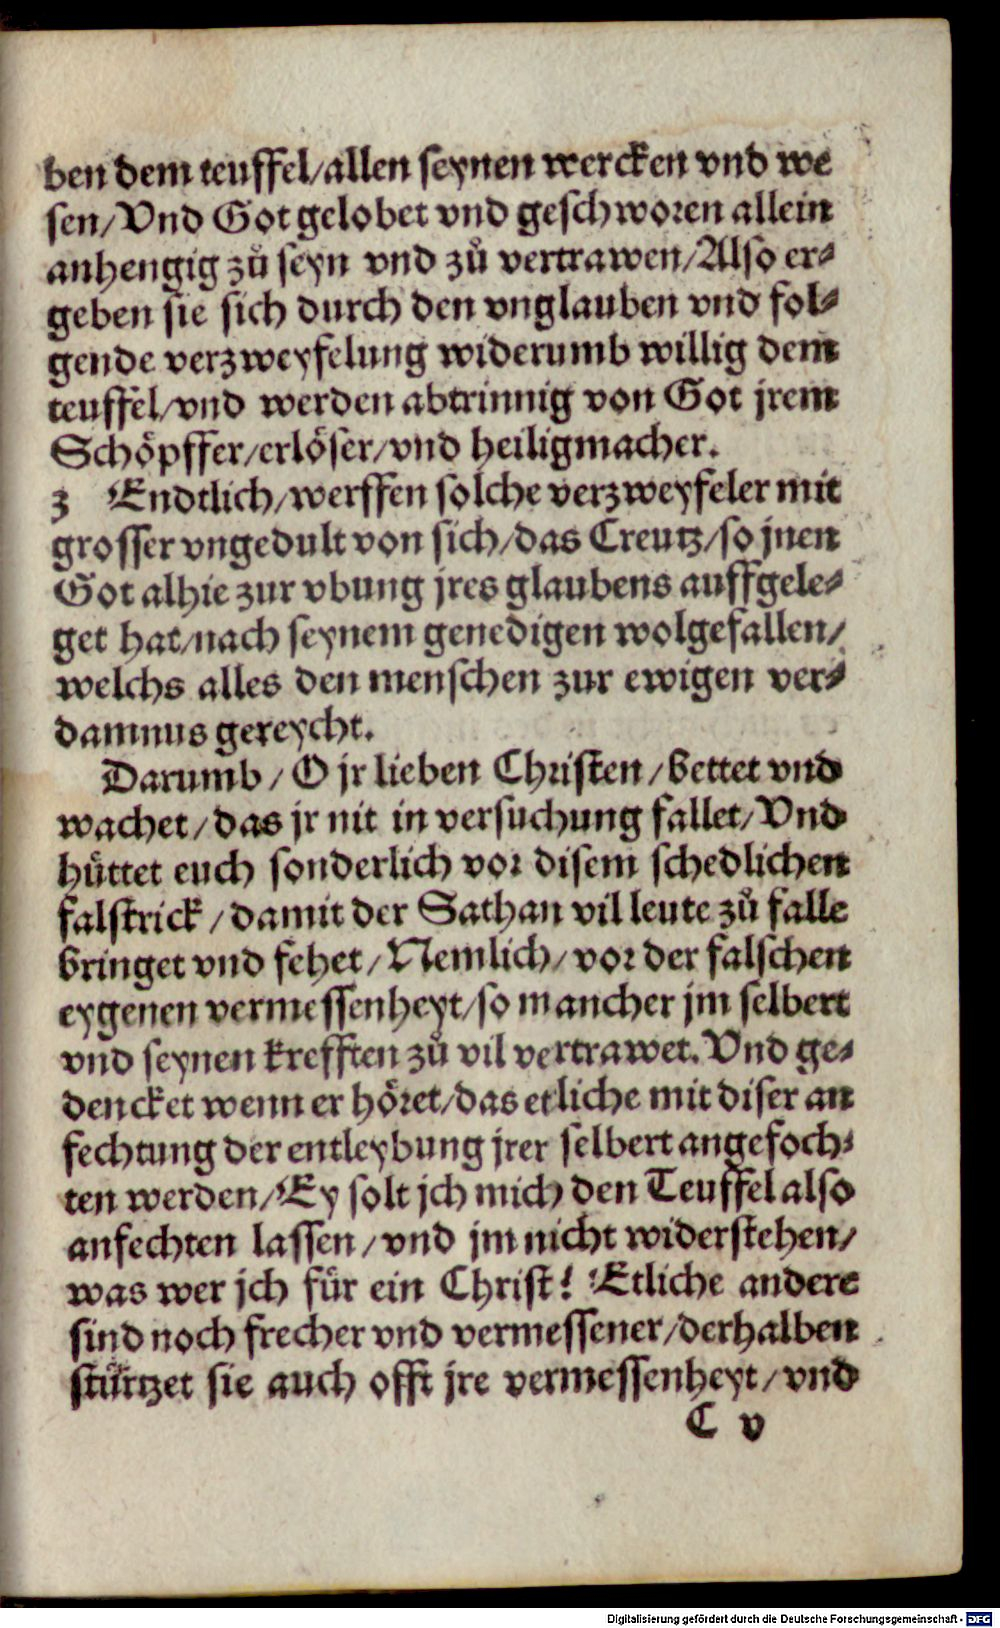 ben dem teuffel/allen seynen wercken vnd we
sen/Vnd Got gelobet vnd geschworen allein
anhengig zů seyn vnd zů vertrawen/Also er⸗
geben sie sich durch den vnglauben vnd fol⸗
gende verzweyfelung widerumb willig dem
teuffel/vnd werden abtrinnig von Got jrem
Schöpffer/erlöser/vnd heiligmacher.
3 Endtlich/werffen solche verzweyfeler mit
grosser vngedult von sich/das Creutz/so jnen
Got alhie zur vbung jres glaubens auffgele⸗
get hat/nach seynem genedigen wolgefallen/
welchs alles den menschen zur ewigen ver⸗
damnus gereycht.
Darumb/O jr lieben Christen/bettet vnd
wachet/das jr nit in versuchung fallet/Vnd
hüttet euch sonderlich vor disem schedlichen
falstrick/damit der Sathan vil leute zů falle
bringet vnd fehet/Nemlich/vor der falschen
eygenen vermessenheyt/so mancher jm selbert
vnd seynen krefften zů vil vertrawet. Vnd ge⸗
dencket wenn er höret/das etliche mit diser an
fechtung der entleybung jrer selbert angefoch⸗
ten werden/Ey solt jch mich den Teuffel also
anfechten lassen/vnd jm nicht widerstehen/
was wer jch für ein Christ? Etliche andere
sind noch frecher vnd vermessener/derhalben
stürtzet sie auch offt jre vermessenheyt/vnd
C v
Digitalisierung gefördert durch die Deutsche Forschungsgemeinschaft - DFG